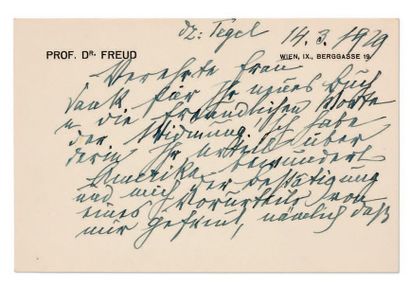 dz: Tegel 14.3.1929
PROF. DR. FREUD WIEN, IX., BERGGASSE 19.
Verehrte Frau
Dank für Ihr neues Buch
u die freundlichen Worte
der Widmung. Ich habe
darin Ihr Urteil über
Amerika bewundert
und mich der Bestätigung
eines Vorurteils von
mir gefreut, nämlich daß